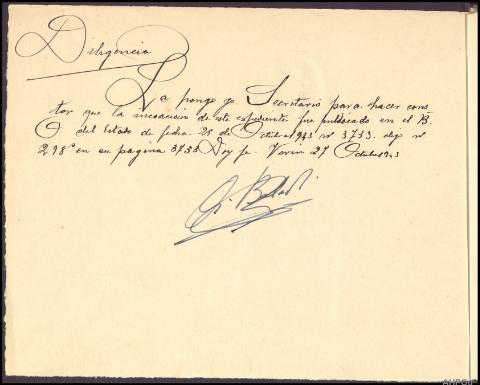 Diligencia
La pongo yo Secretario para hacer cons
tar que la incoación de este expediente fue publicado en el B.
O. del Estado de fecha 25 de Octubre 1943 nº 3733. digo nº
298 en su página 3733 Doy fe. Verin 27 Octubre 1943
AHPOU